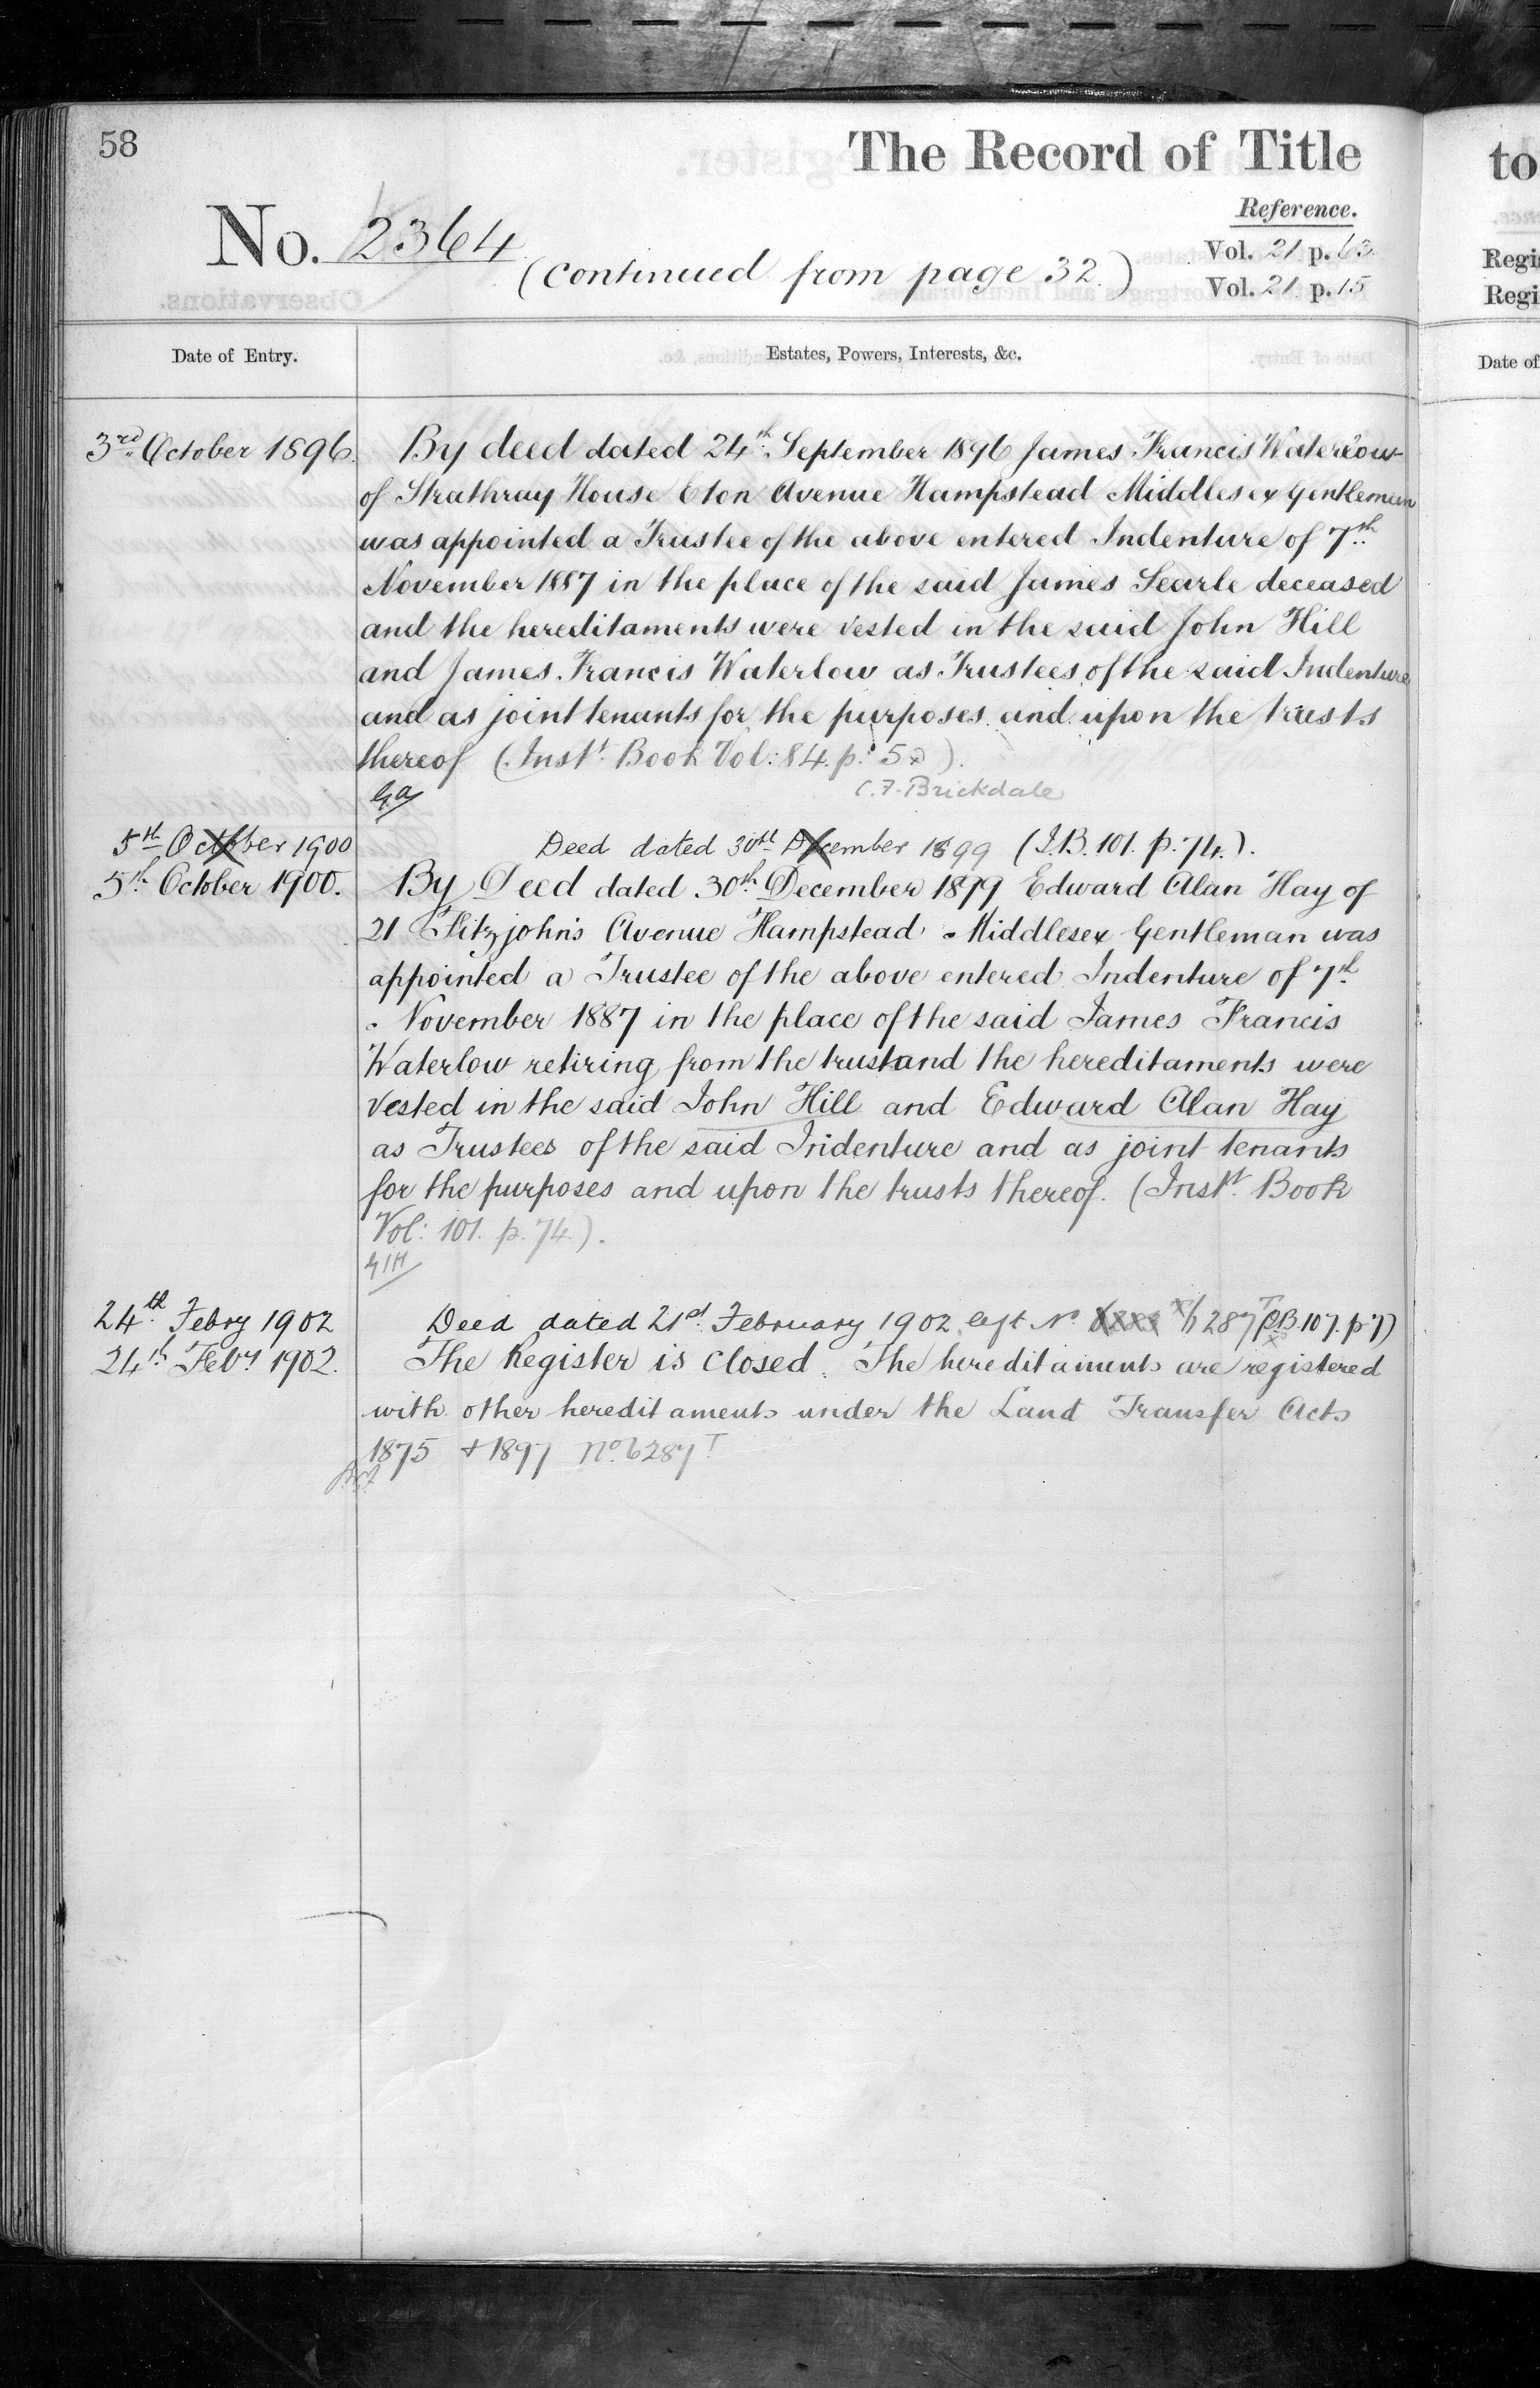 58
The Record of Title
Reference.
No. 2364
(continued from page 32.)
Vol. 21 p. 63
Vol. 21 p. 15
Date of Entry.
Estates, Powers, Interests, &c.
3rd October 1896.
By deed dated 24th September 1896 James Francis Waterlow
of Strathray House Eton Avenue Hampstead Middlesex Gentleman
was appointed a Trustee of the above entered Indenture of 7th
November 1887 in the place of the said James Searle deceased
and the hereditaments were vested in the said John Hill
and James Francis Waterlow as Trustees of the said Indenture
and as joint tenants for the purposes and upon the trusts
thereof (Inst. Book Vol: 84. p: 5).
C. F. Brickdale
5th October 1900
Deed dated 30th December 1899 (I.B. 101. p. 74.).
5th October 1900.
By Deed dated 30th December 1899 Edward Alan Hay of
21 Fitzjohn's Avenue Hampstead Middlesex Gentleman was
appointed a Trustee of the above entered Indenture of 7th
November 1887 in the place of the said James Francis
Waterlow retiring from the trust and the hereditaments were
vested in the said John Hill and Edward Alan Hay
as Trustees of the said Indenture and as joint tenants
for the purposes and upon the trusts thereof. (Instt. Book
Vol: 101. p. 74.).
24th Febry 1902
Deed dated 21st February 1902 left No 6287T (P.B. 107. p. 7)
24th Feby 1902.
The Register is closed. The hereditaments are registered
with other hereditaments under the Land Transfer Acts
1875 & 1897 No. 6287T
to
Regi
Regi
Date of